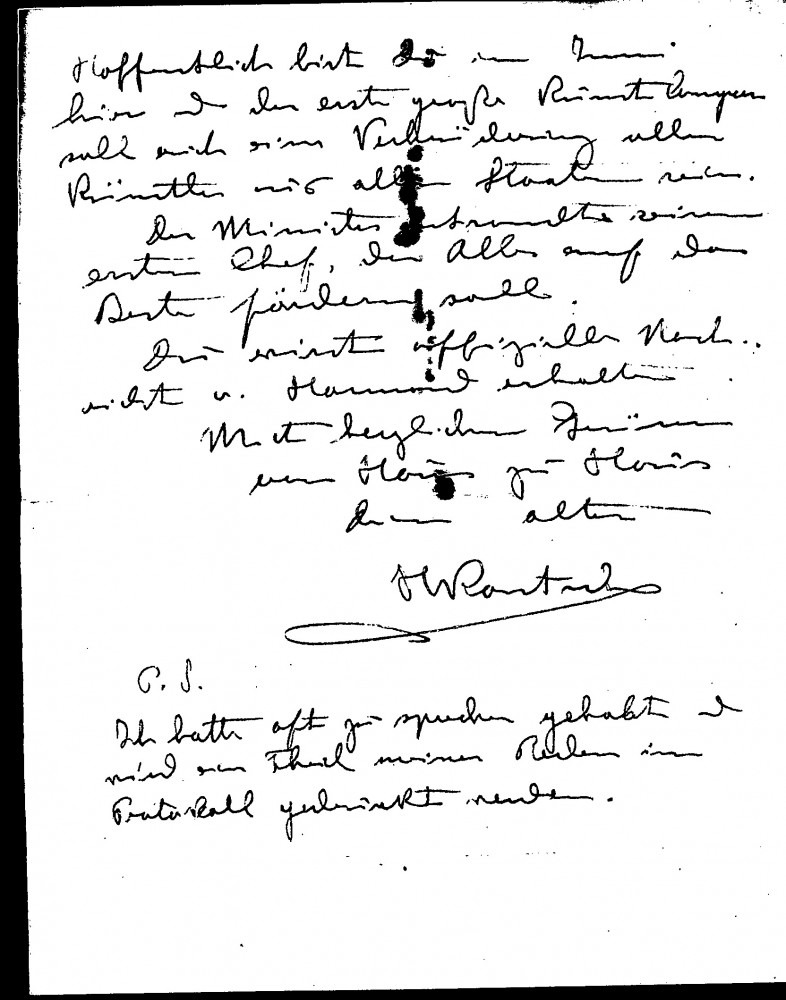 Hoffentlich bist Du im Juni
hier u der erste große Künstlercongress
soll auch eine Verbrüderung aller
Künstler aus allen Staaten sein.
Der Minister entsandte seinen
ersten Chef, der Alles auf das
Beste fördern soll.
Du wirst offizielle Nach-
richt v. erhalten
Mit herzlichen Grüssen
von Haus zu Haus
dein alter
P. S.
Ich hatte oft zu sprechen gehabt u
wird ein Theil meiner Reden im
Protokoll gedruckt werden.